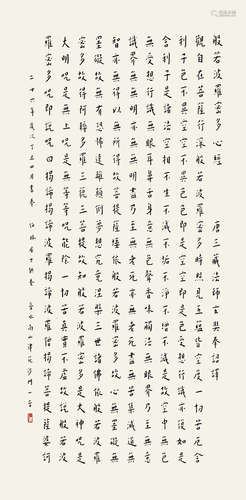 般若波羅蜜多心經 唐三藏法師玄奘奉詔譯
觀自在菩薩行深般若波羅蜜多時照見五蘊皆空度一切苦厄舍
利子色不異空空不異色色即是空空即是色受想行識亦復如是
舍利子是諸法空相不生不滅不垢不淨不增不減是故空中無色
無受想行識無眼耳鼻舌身意無色聲香味觸法無眼界乃至無意
識界無無明亦無無明盡乃至無老死亦無老死盡無苦集滅道無
智亦無得以無所得故菩提薩埵依般若波羅蜜多故心無罣礙無
罣礙故無有恐怖遠離顛倒夢想究竟涅槃三世諸佛依般若波羅
蜜多故得阿耨多羅三藐三菩提故知般若波羅蜜多是大神咒是
大明咒是無上咒是無等等咒能除一切苦真實不虛故說般若波
羅蜜多咒即說咒曰揭諦揭諦波羅揭諦波羅僧揭諦菩提薩婆訶
二十六年歲次丁丑四月書奉 居士供養 沙門一音